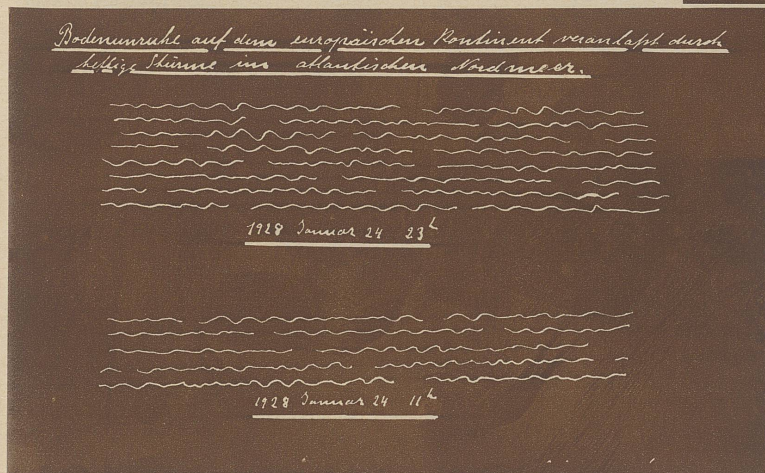 Bodenunruhe auf dem europäischen Kontinent veranlaßt durch
heftige Stürme im atlantischen Nordmeer.
1928 Januar 24 23h
1928 Januar 24 11h